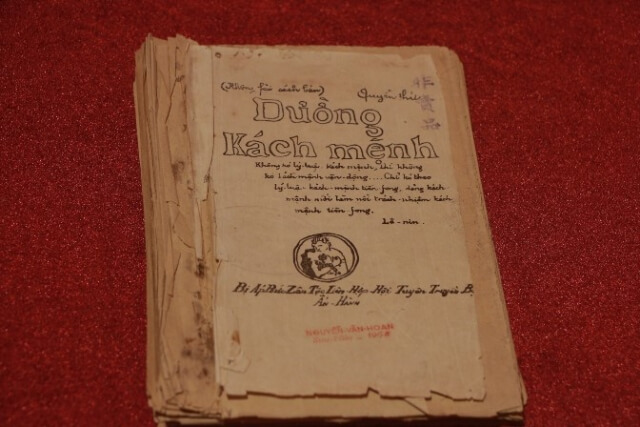 (Không fải sách bán) Quyển thứ
Đường
Kách mệnh
Không có lý luận kách mệnh, thì không
có kách mệnh vận-động.... Chỉ có theo
lý luận kách-mệnh tiền fong, đảng kách
mệnh mới làm nổi trách-nhiệm kách
mệnh tiền fong.
Lê-nin.
Bị Áp Bức Zân Tộc Liên Hợp Hội Tuyên Truyền Bộ
Ấn-Hành